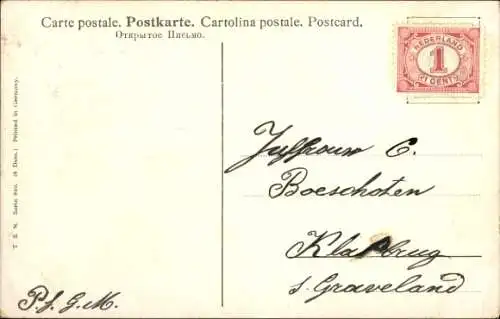 Carte postale. Postkarte. Cartolina postale. Postcard.
Открытое Письмо.
NEDERLAND
1
1 CENT
T. S. N. Serie 800. (6 Dess.) Printed in Germany.
Juffrouw C.
Boeschoten
Klapbrug
s. Graveland
P.f. G.M.